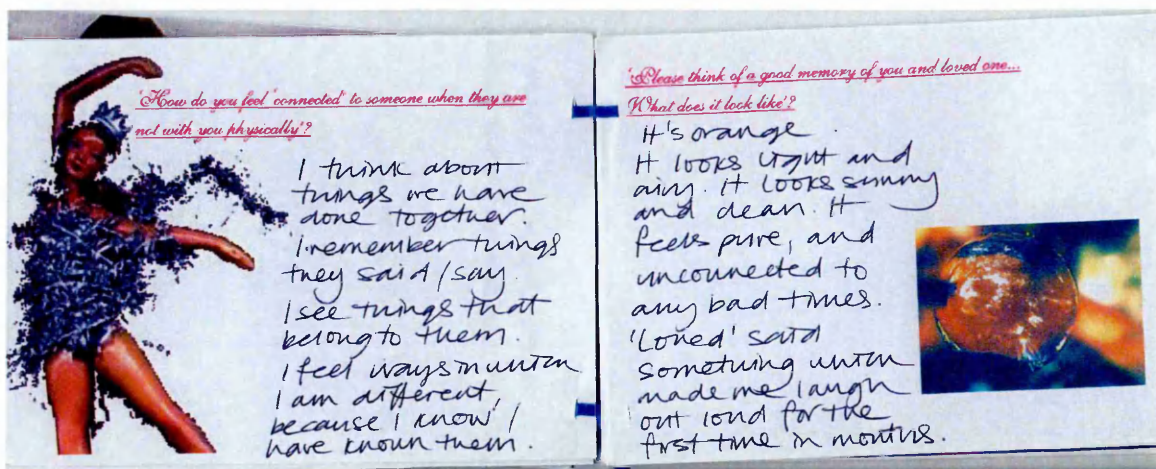 'How do you feel 'connected' to someone when they are
not with you physically'?
I think about
things we have
done together.
I remember things
they said / say.
I see things that
belong to them.
I feel ways in which
I am different,
because I know /
have known them.
'Please think of a good memory of you and loved one...
What does it look like'?
It's orange.
It looks light and
airy. It looks sunny
and clean. It
feels pure, and
unconnected to
any bad times.
'Loved' said
something which
made me laugh
out loud for the
first time in months.